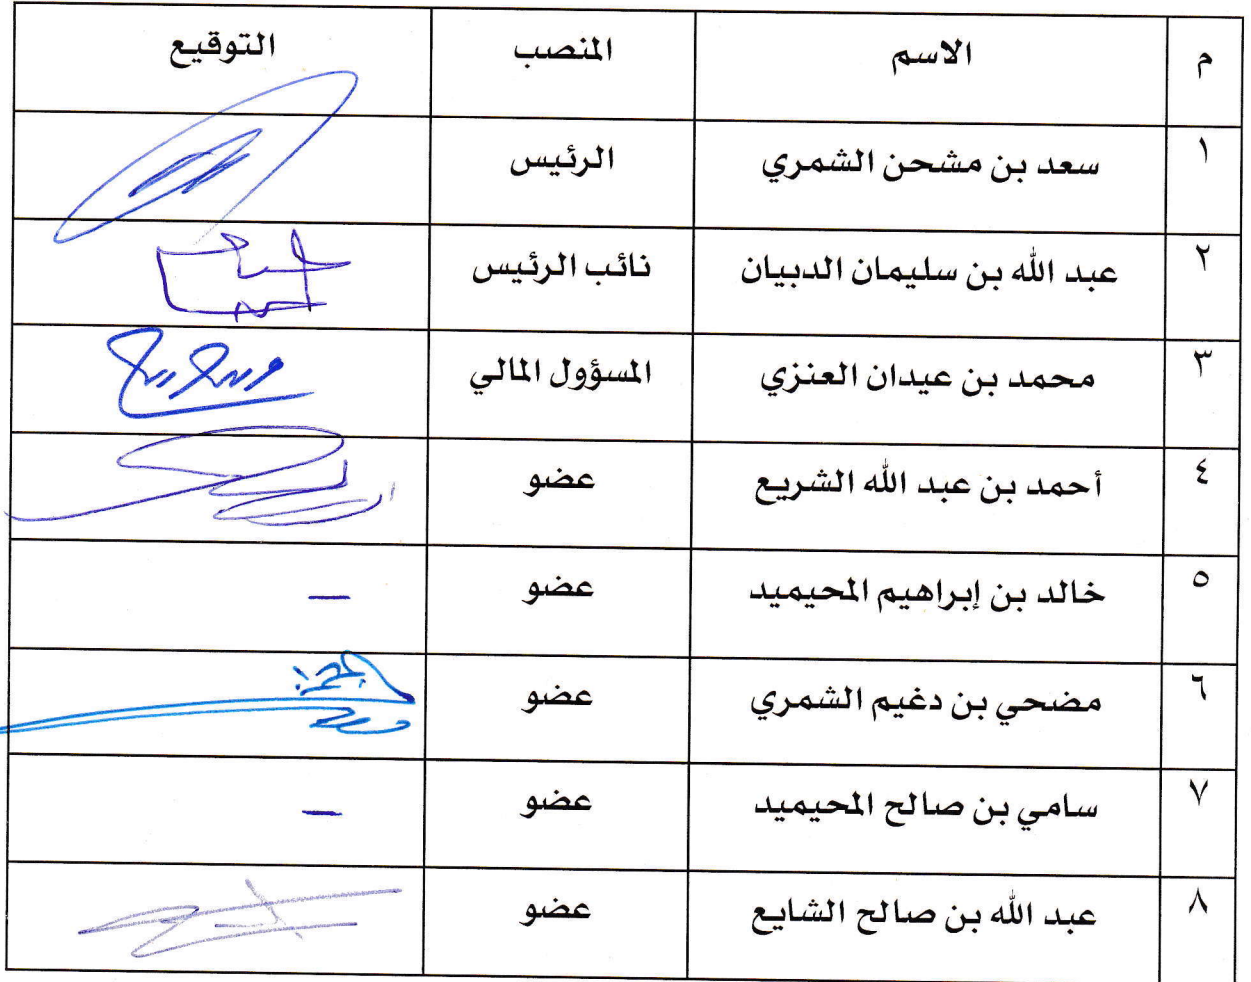 م الاسم المنصب التوقيع
١ سعد بن مشحن الشمري الرئيس
٢ عبد الله بن سليمان الدبيان نائب الرئيس
٣ محمد بن عيدان العنزي المسؤول المالي
٤ أحمد بن عبد الله الشريع عضو
٥ خالد بن إبراهيم المحيميد عضو –
٦ مضحي بن دغيم الشمري عضو
٧ سامي بن صالح المحيميد عضو –
٨ عبد الله بن صالح الشايع عضو